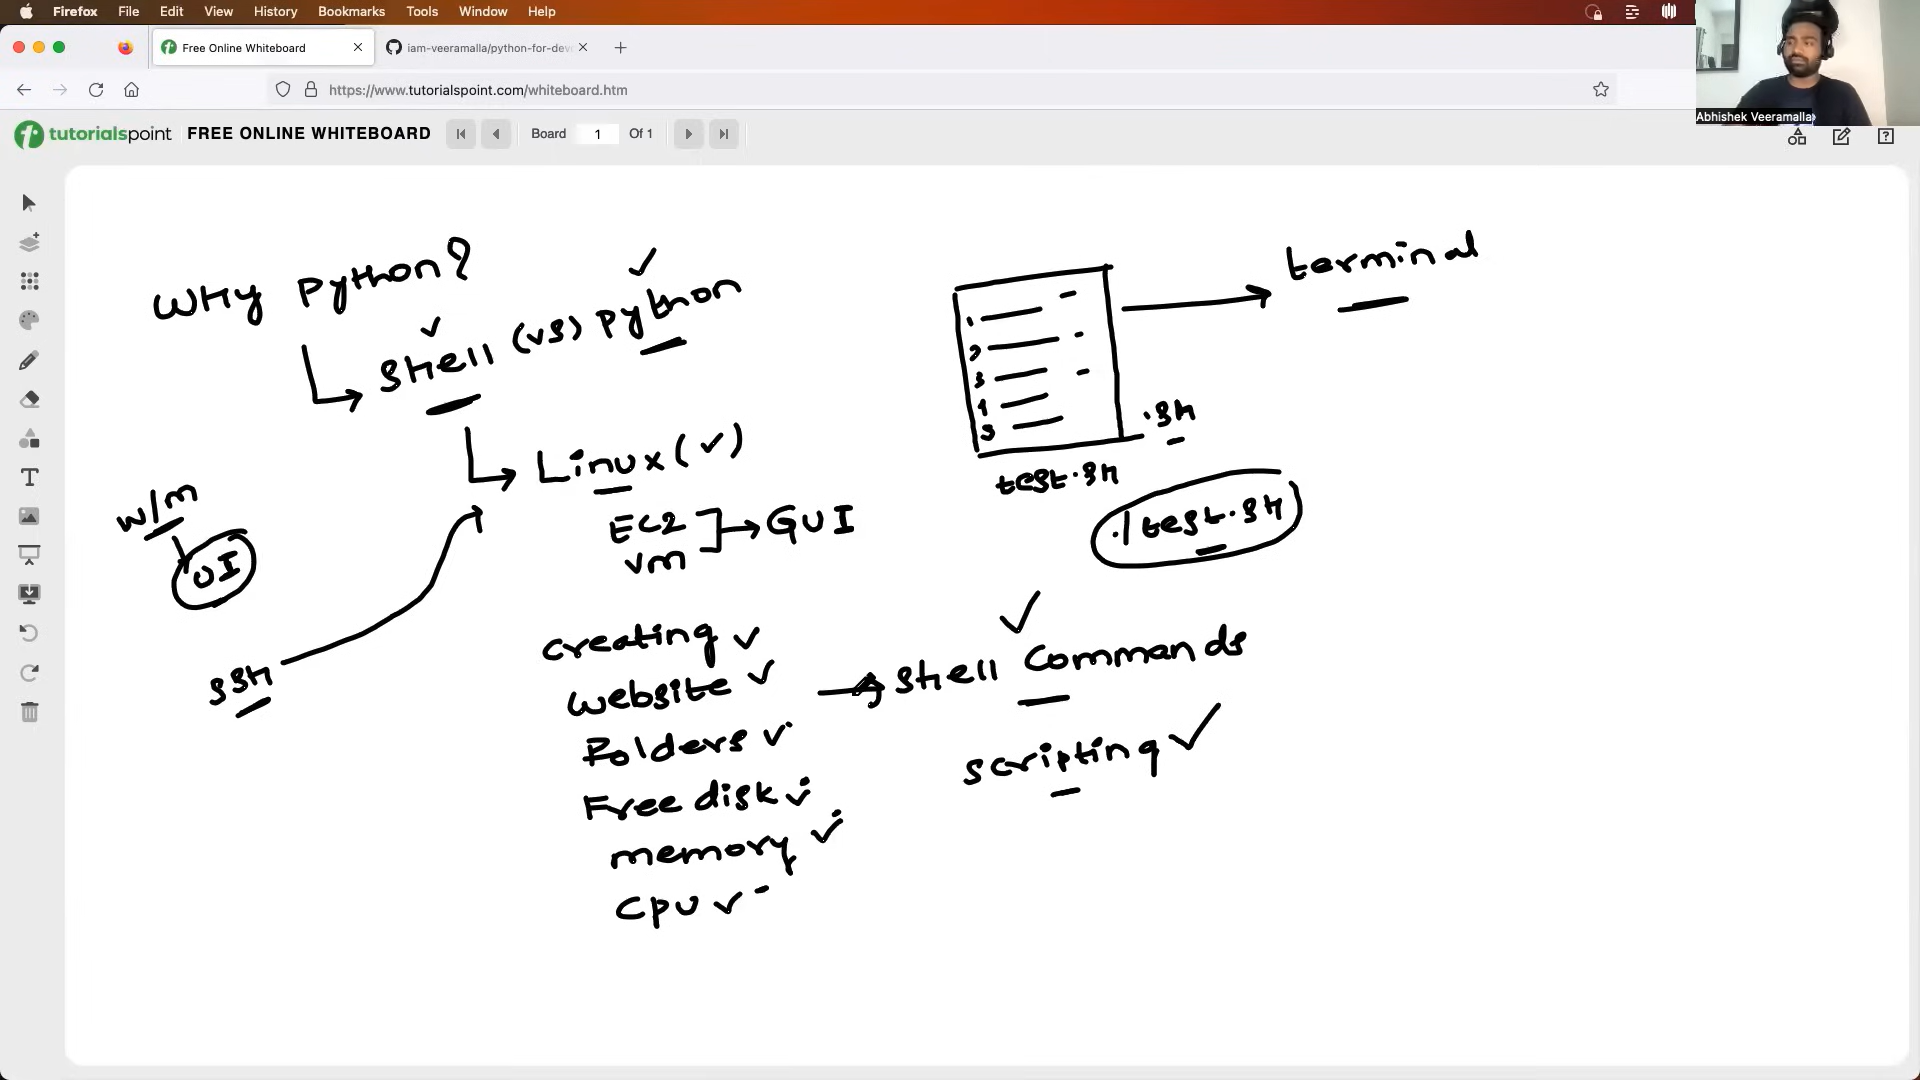 Firefox File Edit View History Bookmarks Tools Window Help
Free Online Whiteboard
iam-veeramalla/python-for-dev
https://www.tutorialspoint.com/whiteboard.htm
Abhishek Veeramalla
tutorialspoint FREE ONLINE WHITEBOARD Board 1 Of 1
Why Python?
Shell (vs) Python
Linux (✓)
EC2
vm
GUI
w/m
UI
SSH
creating ✓
website ✓
Folders ✓
Free disk ✓
memory ✓
CPU ✓
shell Commands ✓
scripting ✓
1
2
3
4
5
.sh
test.sh
./test.sh
terminal
T